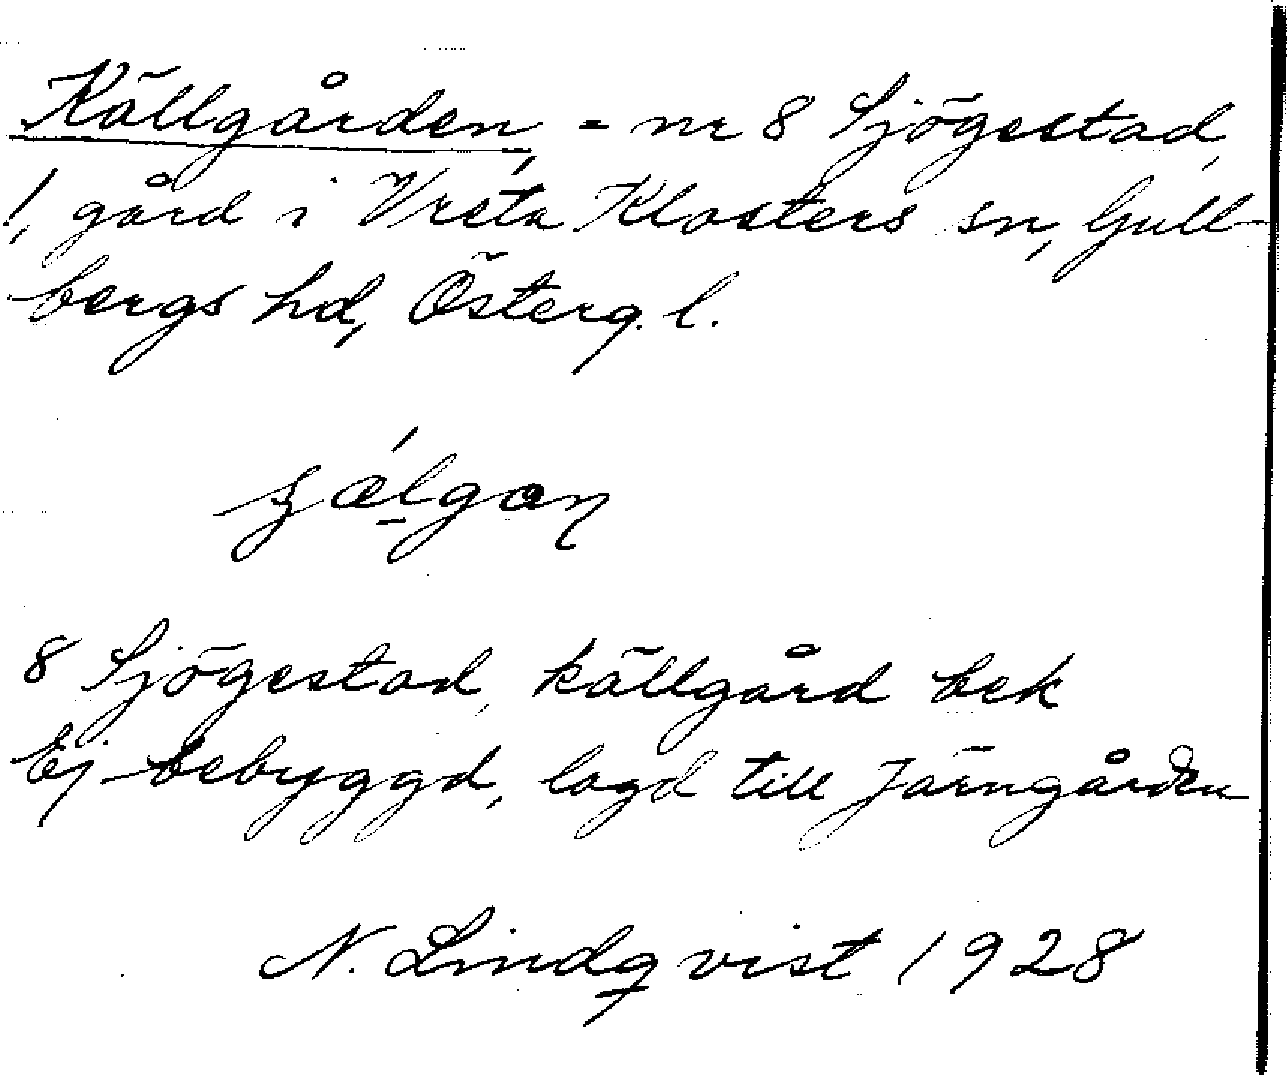 Källgården, = nr 8 Sjögestad,
!, gård i Vreta Klosters sn, Gull-
bergs hd, Österg. l.
8 Sjögestad, källgård bek
Ej bebyggd, lagd till Järngården
N. Lindqvist 1928